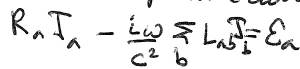 R_a J_a - \frac{i\omega}{c^2} \sum_b L_{ab} J_b = \mathcal{E}_a